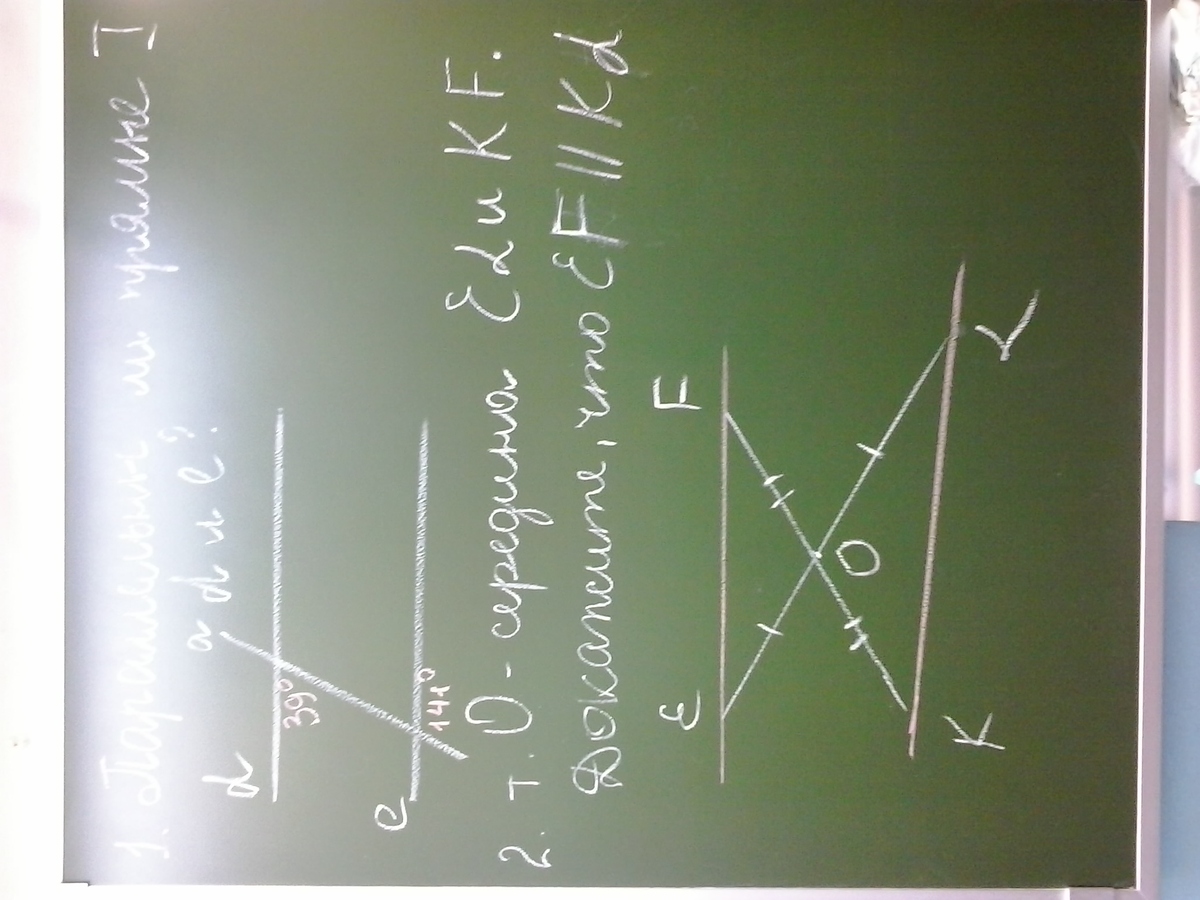 1. Параллельны ли прямые I
d и e?
a
d
39°
e
141°
2. т. О - середина EL и KF.
Докажите, что EF || KL
E F
O
K L